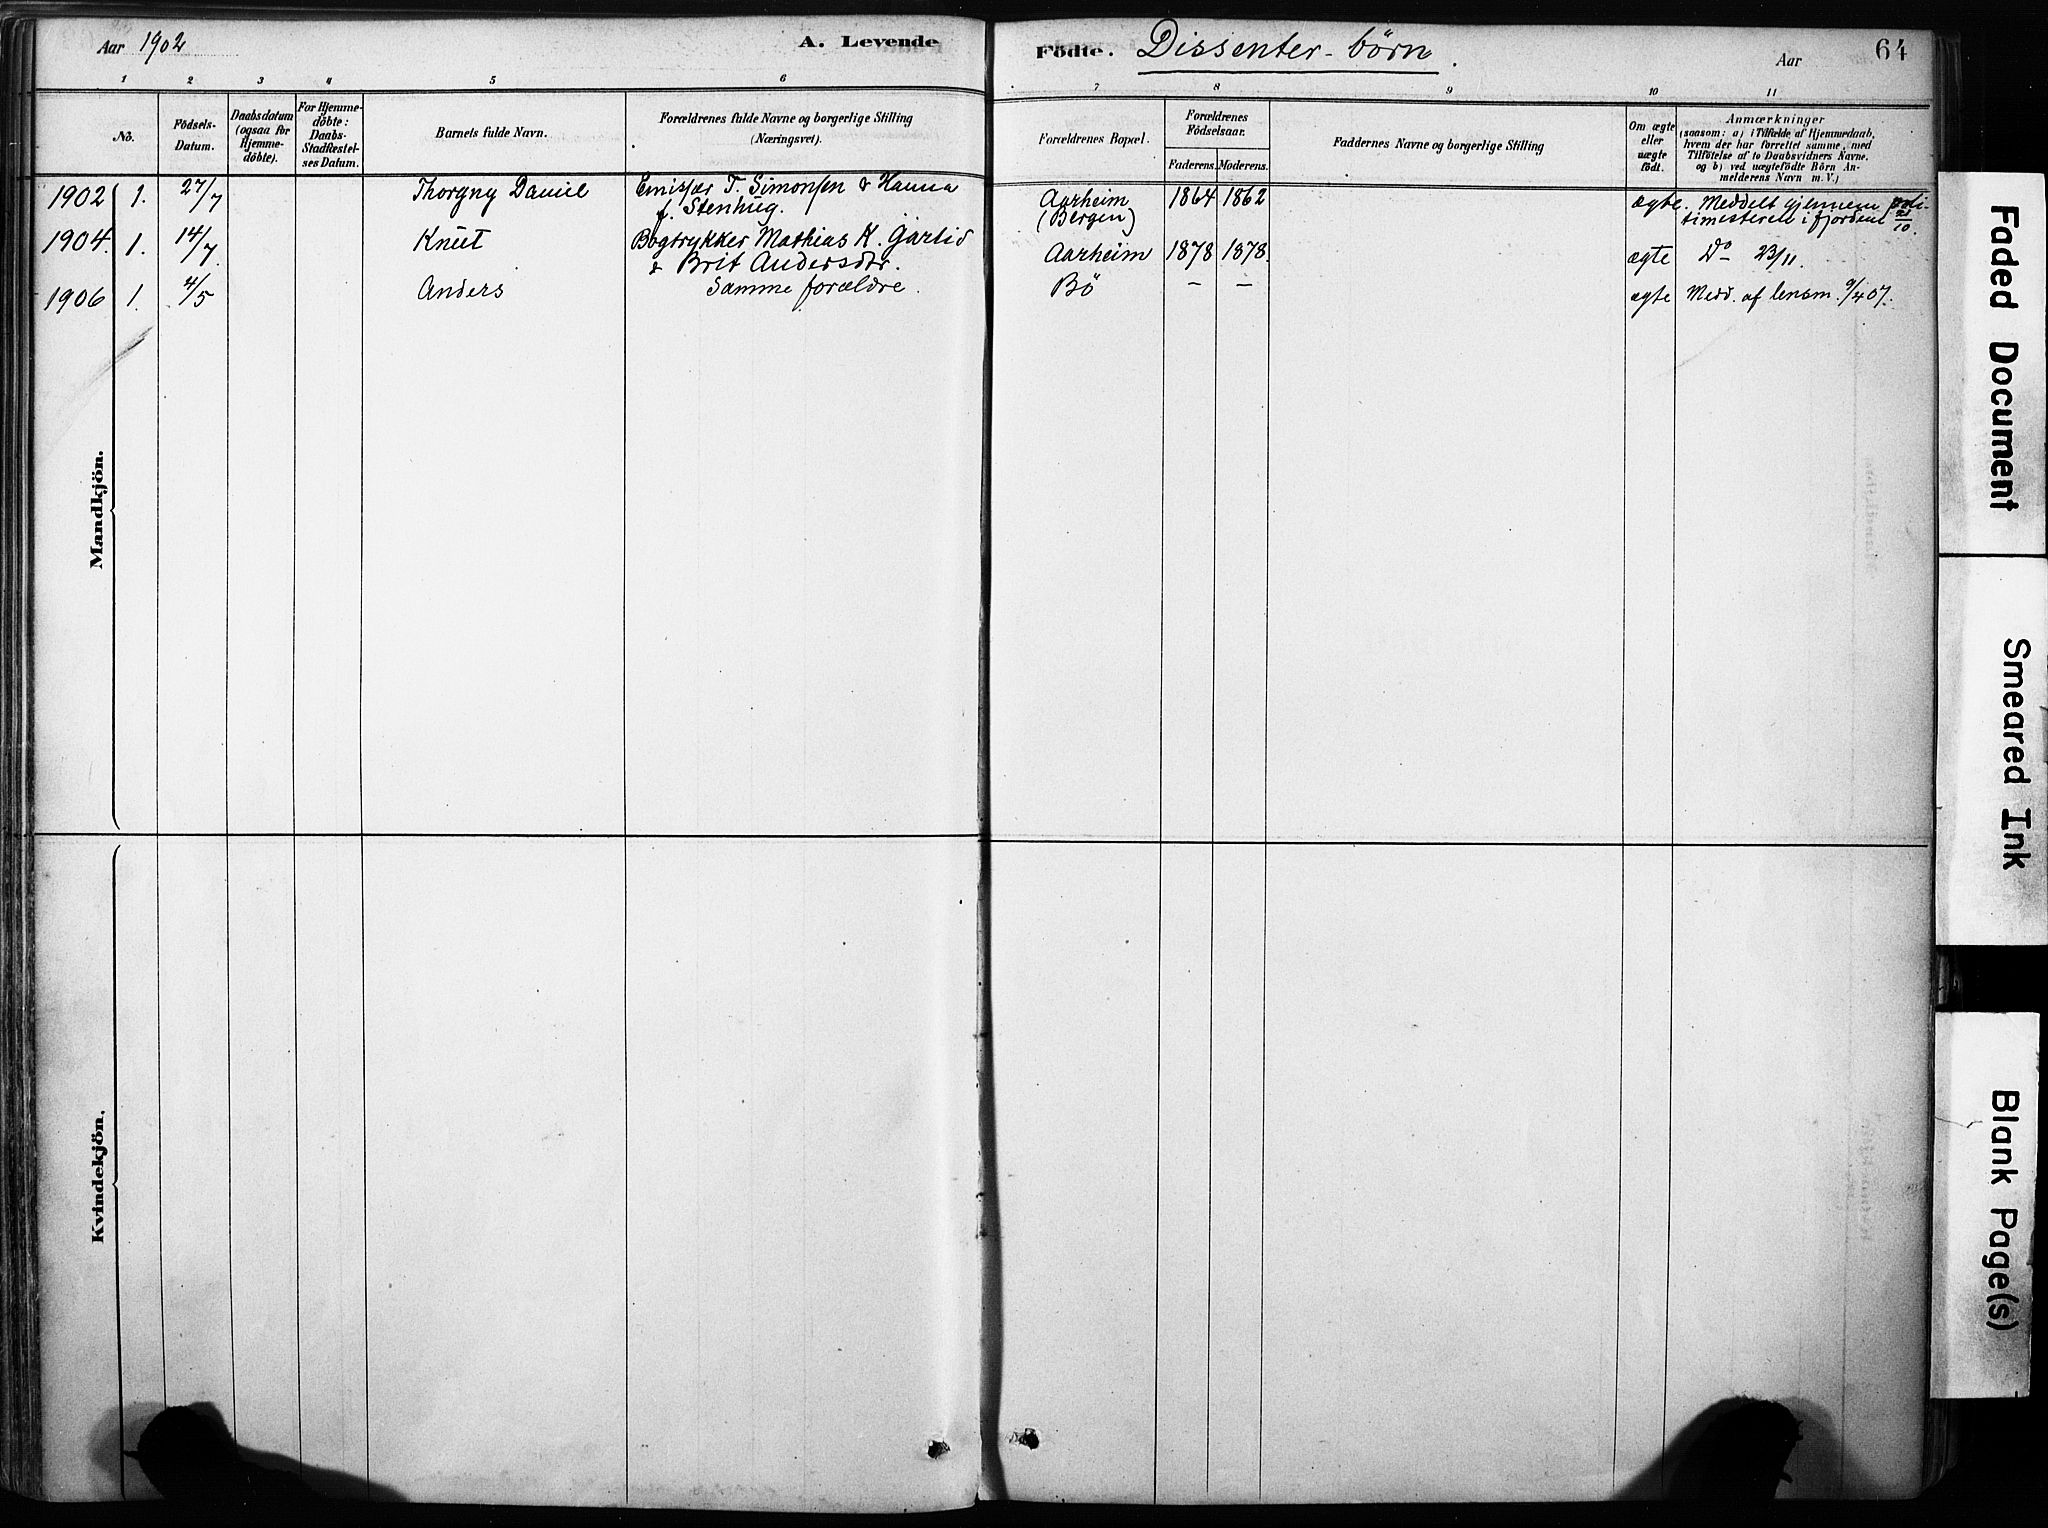 Aar 1902
A. Levende
Födte. Dissenter-børn.
Aar
64
1 2 3 4 5 6 7 8 9 10 11
No.
Födsels-
Datum.
Daabsdatum
(ogsaa for
Hjemme-
döbte).
For Hjemme-
döbte:
Daabs-
Stadfæstel-
ses Datum.
Barnets fulde Navn.
Forældrenes fulde Navne og borgerlige Stilling
(Næringsvei).
Forældrenes Bopæl.
Forældrenes
Födselsaar.
Faderens. Moderens.
Faddernes Navne og borgerlige Stilling
Om ægte
eller
uægte
födt.
Anmærkninger
(saasom: a) i Tilfælde af Hjemmedaab,
hvem der har forrettet samme, med
Tilföielse af to Daabsvidners Navne.
og b) ved uægtefödte Börn An-
melderens Navn m. V.)
1902 1. 27/7 Thorgny Daniel Emissær T. Simonsen & Hanna
f. Stenhug.
Aarheim
(Bergen)
1864 1862 ægte. Meddelt gjennem poli-
timesteren i fjordene 21/10.
1904. 1. 14/7 Knut Bogtrykker Mathias K. Gartid
& Brit Andersdtr.
Aarheim 1878 1878. ægte Do 23/11.
1906 1. 4/5 Anders Samme forældre. Bö — — ægte Medd. af lensm. 9/4 07.
Mandkjön.
Kvindekjön.
Faded Document
Smeared Ink
Blank Page(s)